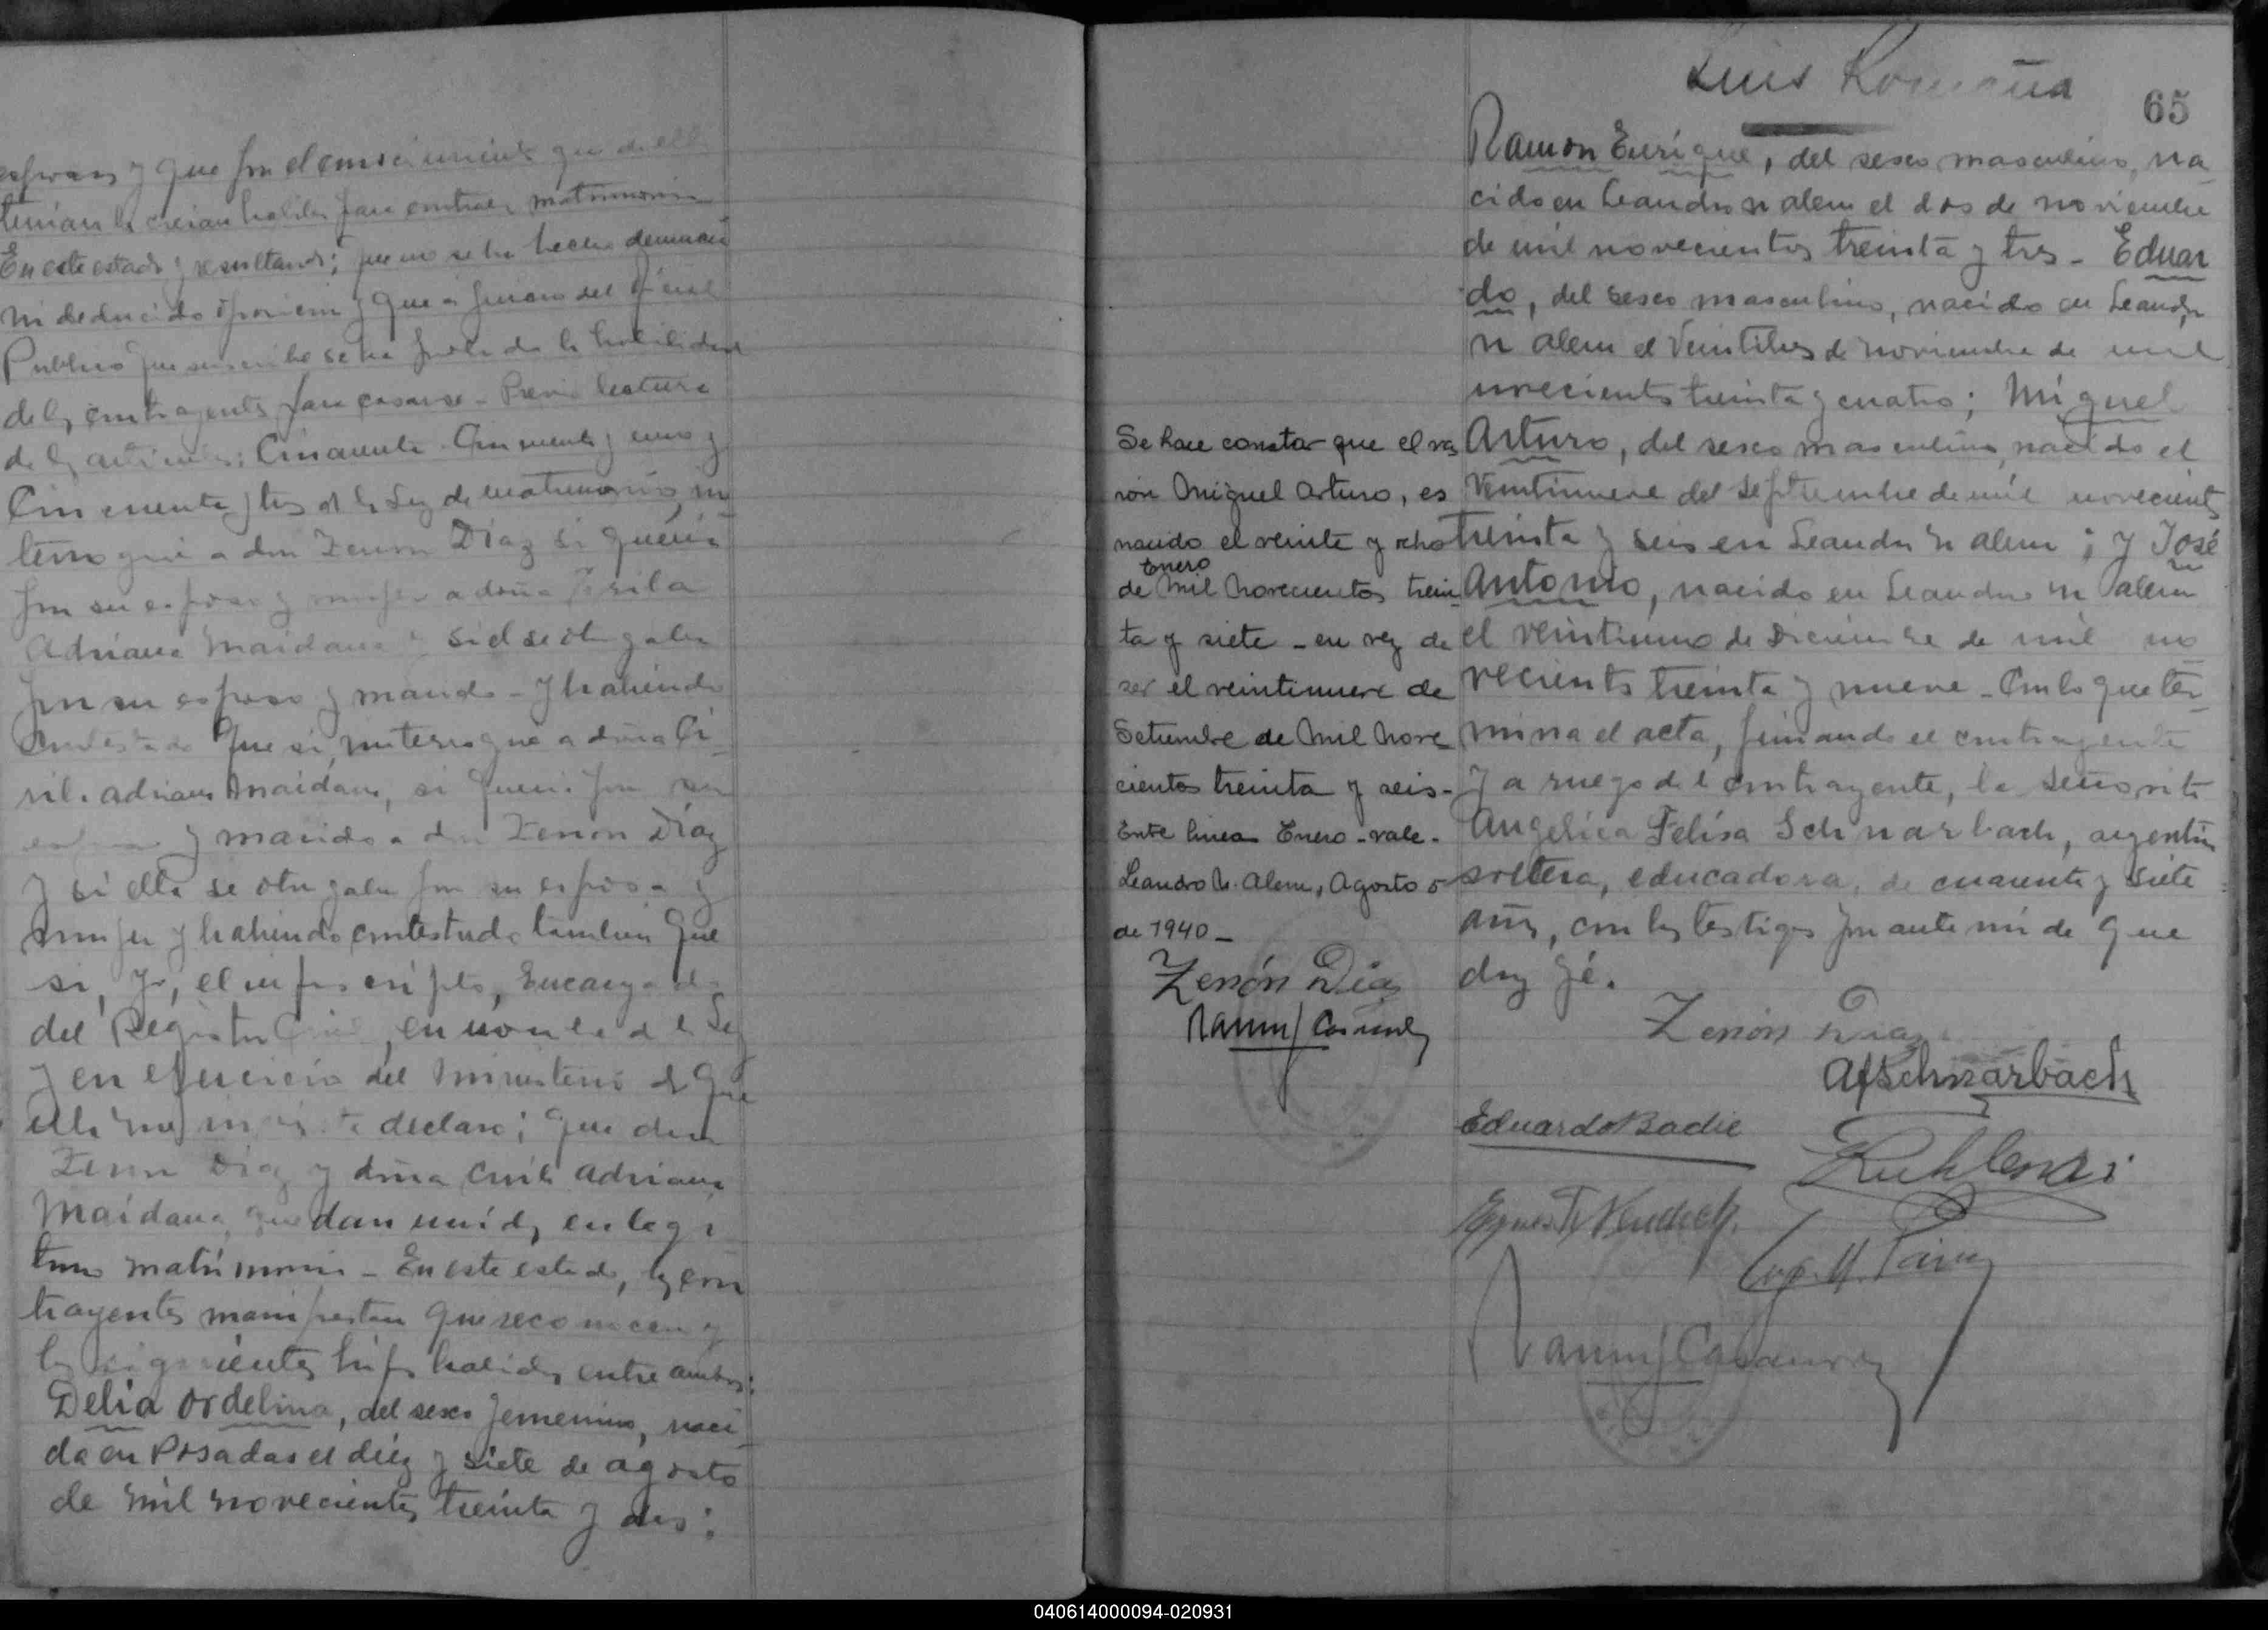 y que por el conocimiento que de ellos
tenian los creian habiles para contraer matrimonio
En este estado y resultando; que no se ha hecho denuncia
ni deducido oposicion y que a juicio del Oficial
Publico que suscribe se ha probado la habilidad
de los contrayentes para casarse - Previa lectura
de los articulos: Cincuenta - Cincuenta y uno y
Cincuenta y tres de la Ley de matrimonio, in
terrogué a don Zenon Diaz si queria
por su esposa y mujer a doña Cirila
Adriana Maidana y si el se otorgaba
por su esposo y marido - y habiendo
contestado que si, interrogué a doña Ci
rila Adriana Maidana, si queria por su
esposo y marido a don Zenon Diaz
y si ella se otorgaba por su esposa y
mujer y habiendo contestado tambien que
si, yo, el infrascripto, Encargado
del Registro Civil, en nombre de la Ley
y en ejercicio del ministerio de que
ella me inviste declaro; que don
Zenon Diaz y doña Cirila Adriana
Maidana, quedan unidos en legi
timo matrimonio - En este estado, los con
trayentes manifiestan que reconocen
los siguientes hijos habidos entre ambos:
Delia Ordelina, del sexo femenino, naci
da en Posadas el diez y siete de agosto
de mil novecientos treinta y dos;
Luis Romaña
65
Ramon Enrique, del sexo masculino, na
cido en Leandro N Alem el dos de noviembre
de mil novecientos treinta y tres - Eduar
do, del sexo masculino, nacido en Leandro
N Alem el Veintitres de noviembre de mil
novecientos treinta y cuatro; Miguel
Arturo, del sexo masculino, nacido el
Veintinueve del Septiembre de mil novecientos
treinta y seis en Leandro N Alem; y José
Antonio, nacido en Leandro N Alem
el veintiuno de Diciembre de mil no
vecientos treinta y nueve - Con lo que ter
mina el acta, firmando el contrayente
y a ruego de la contrayente, la señorita
Angelica Felisa Schnarbach, argentina
soltera, educadora, de cuarenta y siete
años, con los testigos por ante mi de que
doy fé.
Se hace constar que el va
rón Miguel Arturo, es
nacido el veinte y ocho
Enero
de mil novecientos trein
ta y siete - en vez de
ser el veintinueve de
Setiembre de mil nove
cientos treinta y seis -
Entre lineas Enero - vale -
Leandro N. Alem, Agosto 5
de 1940 -
Zenón Diaz
Zenón Diaz
AFSchnarbach
Eduardo Badie